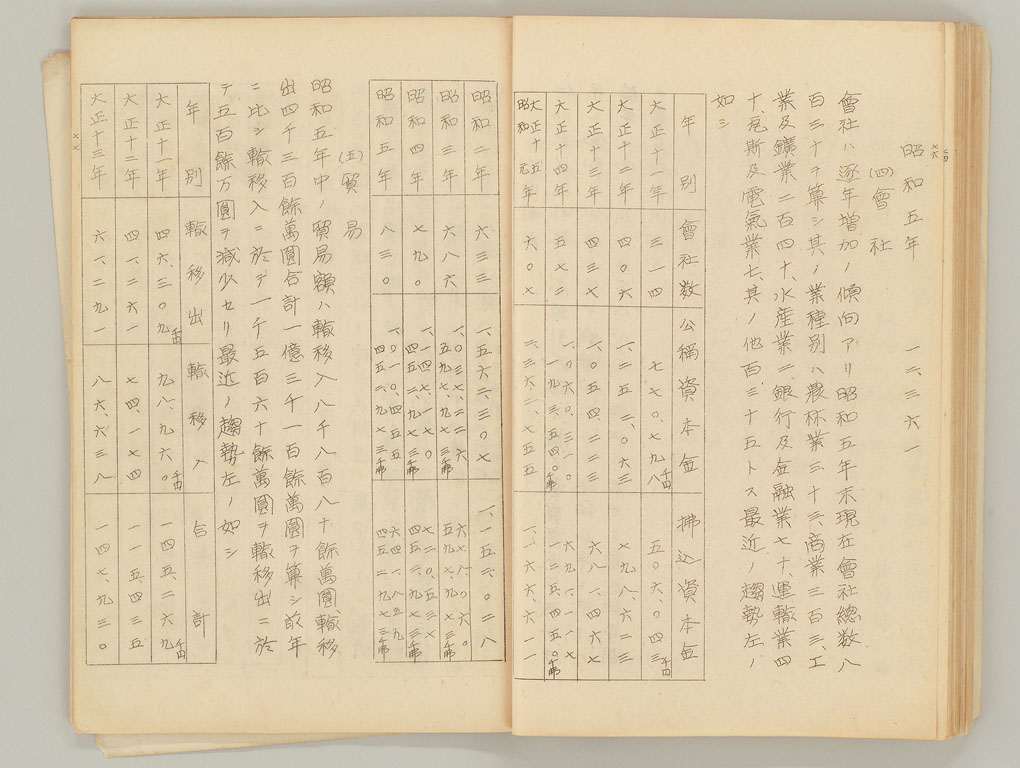 昭和五年　一二、三六一
(四)會社
會社ハ逐年増加ノ傾向アリ昭和五年末現在會社總数八
百三十ヲ算シ其ノ業種別ハ農林業三十三、商業三百三、工
業及鑛業二百四十、水産業二、銀行及金融業七十、運輸業四
十、瓦斯及電氣業七、其ノ他百三十五トス最近ノ趨勢左ノ
如シ
年別　會社数　公稱資本金　拂込資本金
大正十一年　三一四　七七〇、七九八千円　五〇六、〇四三千円
大正十二年　四〇六　七九八、六二三
大正十三年　四三七　一、〇五四、二二三　六八一、四六七
大正十四年　五七二
大正十五年昭和元年　六〇七　一、一六六、六一一
昭和二年　六三三　一、五六二、三〇七　一、一五二、〇二八
昭和三年　六八六
昭和四年　七九〇
昭和五年　八三〇
(五)貿易
昭和五年中ノ貿易額ハ輸移入八千八百八十餘萬圓、輸移
出四千三百餘萬圓合計一億三千一百餘萬圓ヲ算シ前年
ニ比シ輸移入ニ於テ一千五百六十餘萬圓ヲ輸移出ニ於
テ五百餘万圓ヲ減少セリ最近ノ趨勢左ノ如シ
年別　輸移出　輸移入　合計
大正十一年　四六、三〇九千円　九八、九六〇千円　一四五、二六九千円
大正十二年　四一、二六一　七四、一七四　一一五、四三五
大正十三年　六一、二九一　八六、六三八　一四七、九三〇